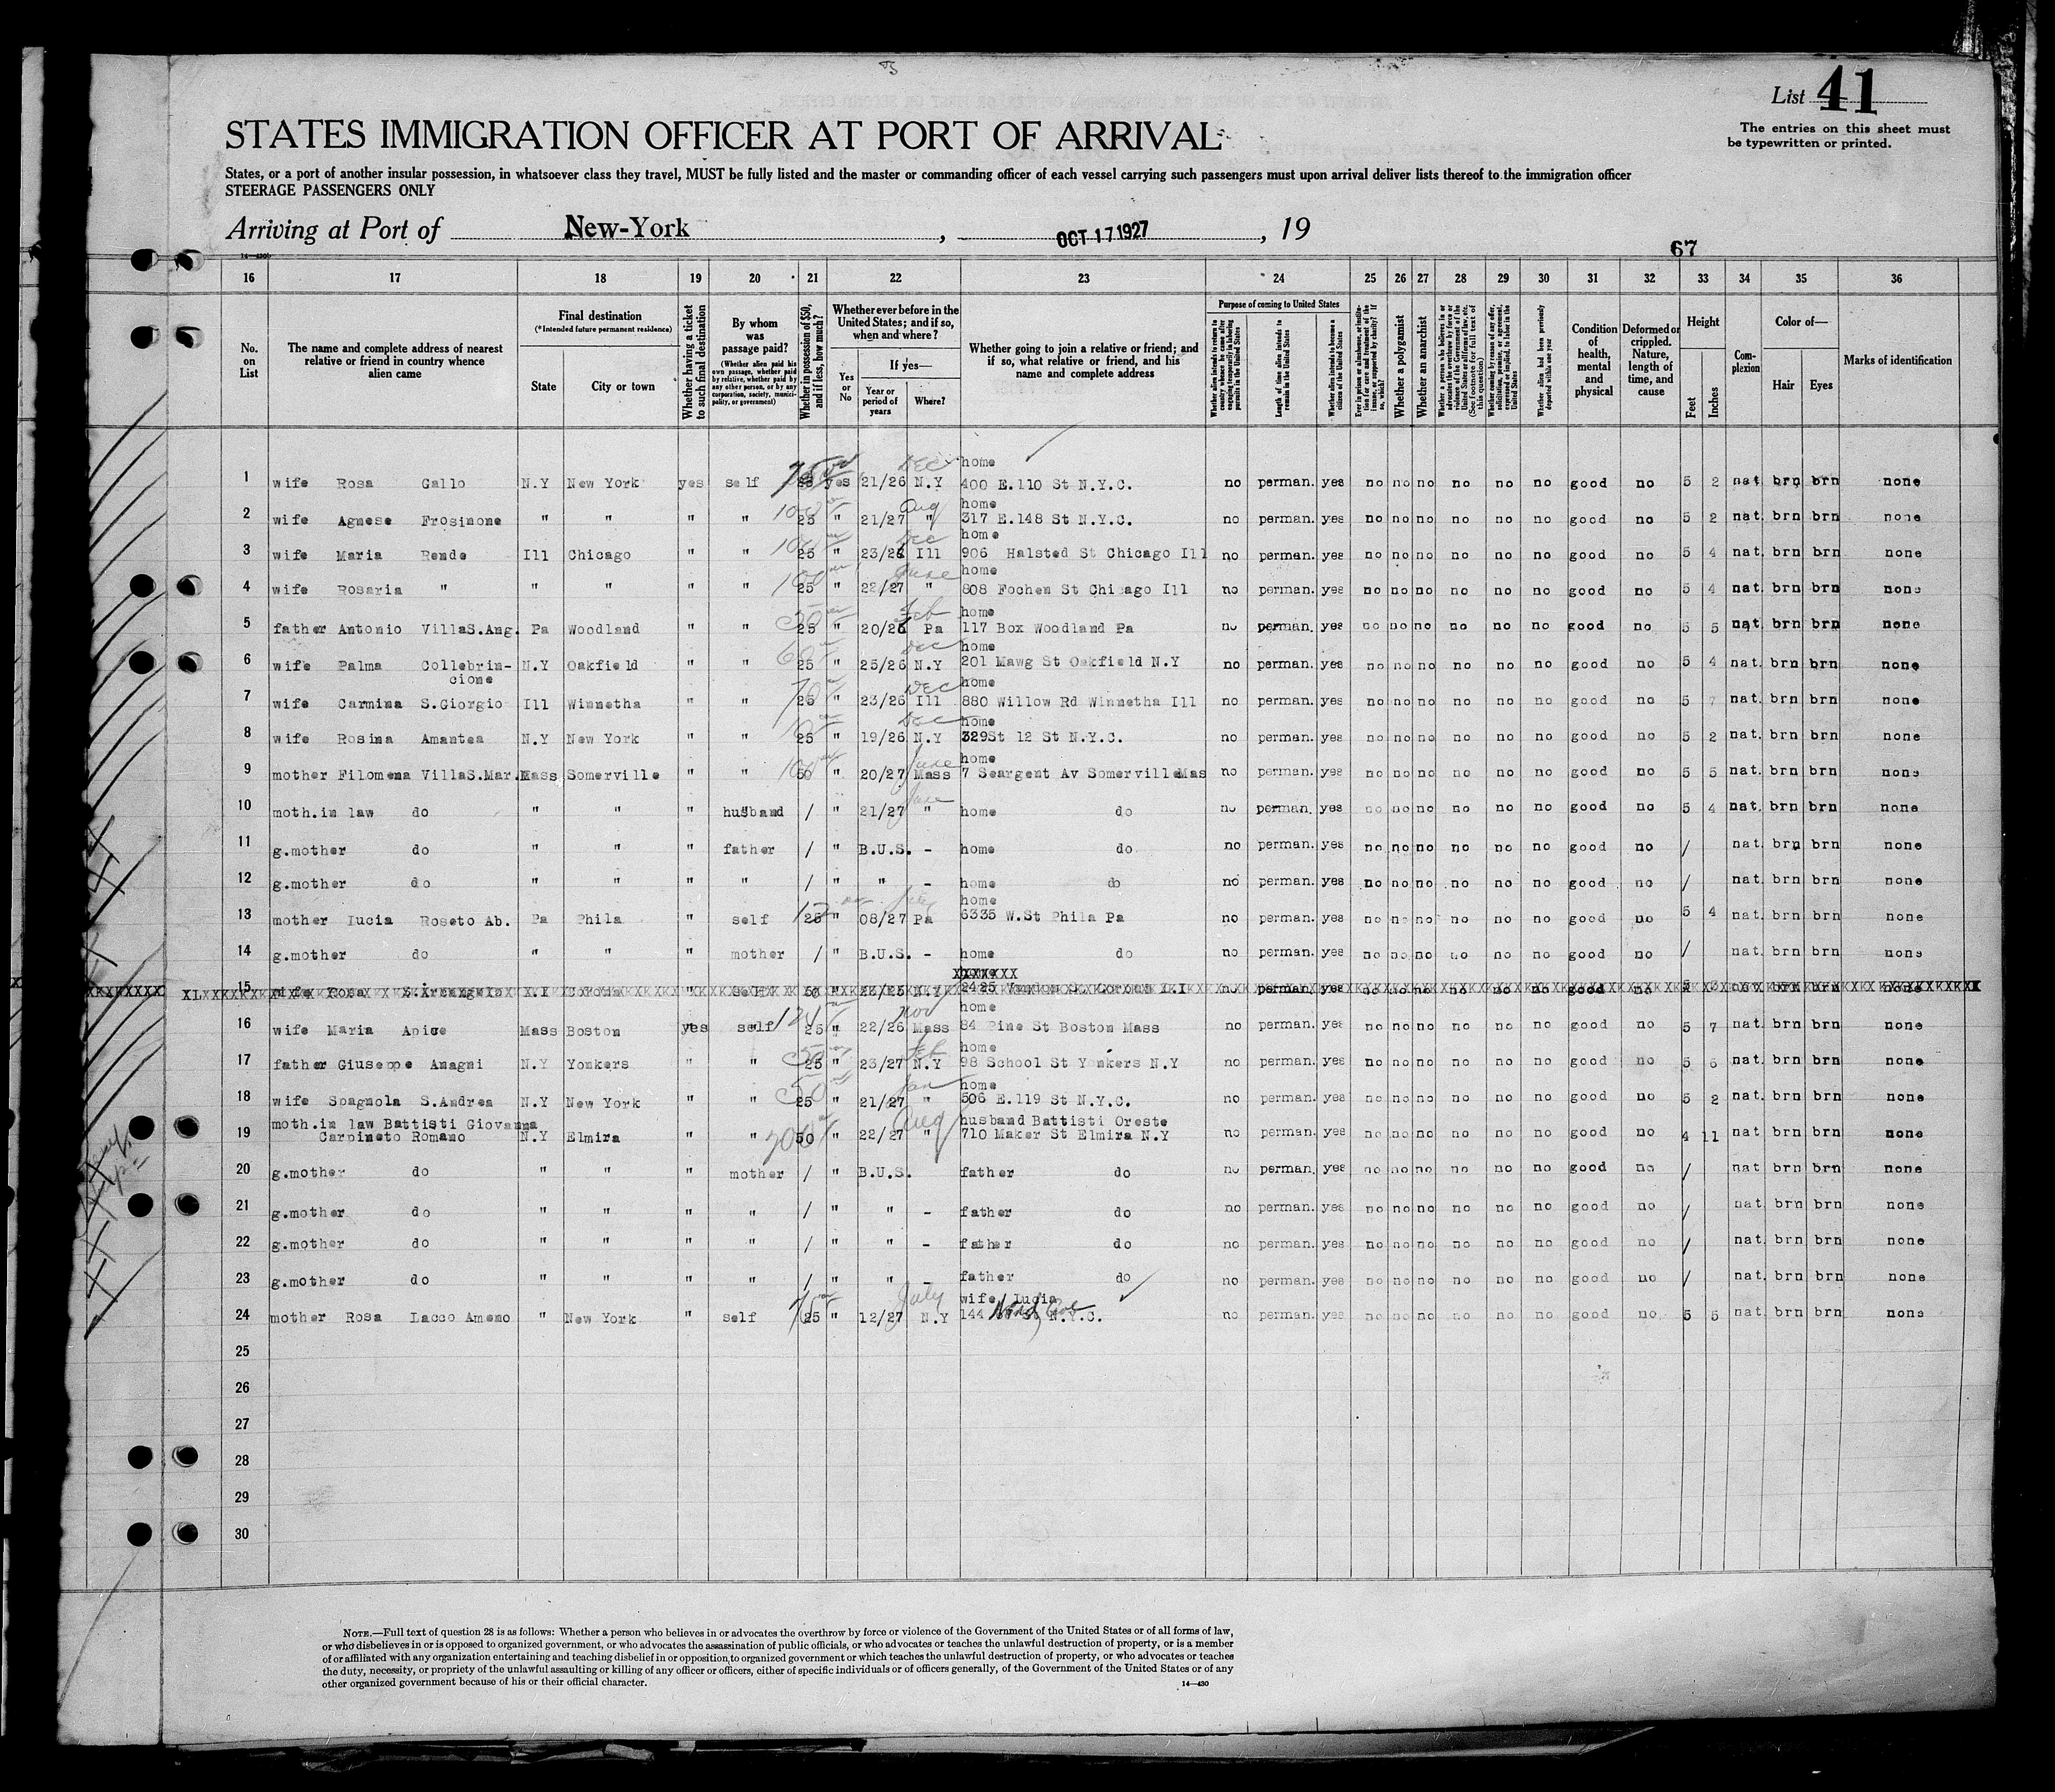 List 41
The entries on this sheet must
be typewritten or printed.
STATES IMMIGRATION OFFICER AT PORT OF ARRIVAL
States, or a port of another insular possession, in whatsoever class they travel, MUST be fully listed and the master or commanding officer of each vessel carrying such passengers must upon arrival deliver lists thereof to the immigration officer
STEERAGE PASSENGERS ONLY
Arriving at Port of New-York, OCT 17 1927, 19
67
16 17 18 19 20 21 22 23 24 25 26 27 28 29 30 31 32 33 34 35 36
No. on List
The name and complete address of nearest relative or friend in country whence alien came
Final destination
(*Intended future permanent residence)
State
City or town
Whether having a ticket to such final destination
By whom was passage paid?
(Whether alien paid his own passage, whether paid by relative, whether paid by any other person, or by any corporation, society, municipality, or government)
Whether in possession of $50, and if less, how much?
Whether ever before in the United States; and if so, when and where?
Yes or No
If yes—
Year or period of years
Where?
Whether going to join a relative or friend; and if so, what relative or friend, and his name and complete address
Purpose of coming to United States
Whether alien intends to return to country whence he came after engaging temporarily in laboring pursuits in the United States
Length of time alien intends to remain in the United States
Whether alien intends to become a citizen of the United States
Whether a polygamist
Whether an anarchist
Condition of health, mental and physical
Deformed or crippled. Nature, length of time, and cause
Height
Feet
Inches
Complexion
Color of—
Hair
Eyes
Marks of identification
1 wife Rosa Gallo N.Y New York yes self yes 21/26 Dec N.Y home 400 E.110 St N.Y.C. no perman. yes no no no no no no good no 5 2 nat brn brn none
2 wife Agnese Frosinone " " " " 25 " 21/27 Aug " home 317 E.148 St N.Y.C. no perman. yes no no no no no no good no 5 2 nat. brn brn none
3 wife Maria Rende Ill Chicago " " 25 " 23/26 Dec Ill home 906 Halsted St Chicago Ill no perman. yes no no no no no no good no 5 4 nat. brn brn none
4 wife Rosaria " " " " " 25 " 22/27 June " home 808 Fochem St Chicago Ill no perman. yes no no no no no no good no 5 4 nat. brn brn none
5 father Antonio VillaS.Ang. Pa Woodland " " 25 " 20/26 Feb Pa home 117 Box Woodland Pa no perman. yes no no no no no no good no 5 5 nat. brn brn none
6 wife Palma Collebrin-cione N.Y Oakfield " " 25 " 25/26 Dec N.Y home 201 Mawg St Oakfield N.Y no perman. yes no no no no no no good no 5 4 nat. brn brn none
7 wife Carmina S.Giorgio Ill Winnetha " " 25 " 23/26 Dec Ill home 880 Willow Rd Winnetha Ill no perman. yes no no no no no no good no 5 7 nat. brn brn none
8 wife Rosina Amantea N.Y New York " " 25 " 19/26 Dec N.Y home 329St 12 St N.Y.C. no perman. yes no no no no no no good no 5 2 nat. brn brn none
9 mother Filomena VillaS.Mar. Mass Somerville " " 50 " 20/27 June Mass home 7 Seargent Av SomervilleMas no perman. yes no no no no no no good no 5 5 nat. brn brn none
10 moth.in law do " " " husband / " 21/27 June " home do no perman. yes no no no no no no good no 5 4 nat. brn brn none
11 g.mother do " " " father / " B.U.S. - home do no perman. yes no no no no no no good no / nat. brn brn none
12 g.mother do " " " " / " " - home do no perman. yes no no no no no no good no / nat. brn brn none
13 mother Lucia Roseto Ab. Pa Phila " self 25 " 08/27 July Pa home 6335 W.St Phila Pa no perman. yes no no no no no no good no 5 4 nat. brn brn none
14 g.mother do " " " mother / " B.U.S. - home do no perman. yes no no no no no no good no / nat. brn brn none
15 wife Rosa S.Arcangelo
16 wife Maria Apice Mass Boston yes self 25 " 22/26 Nov Mass home 84 Pine St Boston Mass no perman. yes no no no no no no good no 5 7 nat. brn brn none
17 father Giuseppe Anagni N.Y Yonkers " " 25 " 23/27 Feb N.Y home 98 School St Yonkers N.Y no perman. yes no no no no no no good no 5 6 nat. brn brn none
18 wife Spagnola S.Andrea N.Y New York " " 25 " 21/27 Jan " home 506 E.119 St N.Y.C. no perman. yes no no no no no no good no 5 2 nat. brn brn none
19 moth.in law Battisti Giovanna Carpineto Romano N.Y Elmira " " 50 " 22/27 Aug " husband Battisti Oreste 710 Maker St Elmira N.Y no perman. yes no no no no no no good no 4 11 nat brn brn none
20 g.mother do " " " mother / " B.U.S. father do no perman. yes no no no no no no good no / nat brn brn none
21 g.mother do " " " " / " " - father do no perman. yes no no no no no no good no / nat. brn brn none
22 g.mother do " " " " / " " - father do no perman. yes no no no no no no good no / nat. brn brn none
23 g.mother do " " " " / " " - father do no perman. yes no no no no no no good no / nat. brn brn none
24 mother Rosa Lacco Ameno " New York " self 25 " 12/27 July N.Y wife Lucia 144 N.Y.C. no perman. yes no no no no no no good no 5 5 nat. brn brn none
25
26
27
28
29
30
NOTE.—Full text of question 28 is as follows: Whether a person who believes in or advocates the overthrow by force or violence of the Government of the United States or of all forms of law,
or who disbelieves in or is opposed to organized government, or who advocates the assassination of public officials, or who advocates or teaches the unlawful destruction of property, or is a member
of or affiliated with any organization entertaining and teaching disbelief in or opposition to organized government or which teaches the unlawful destruction of property, or who advocates or teaches
the duty, necessity, or propriety of the unlawful assaulting or killing of any officer or officers, either of specific individuals or of officers generally, of the Government of the United States or of any
other organized government because of his or their official character.
14—430